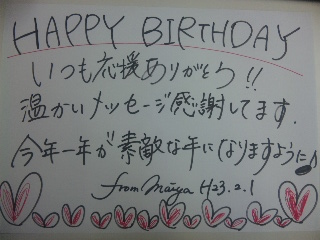 HAPPY BIRTHDAY
いつも応援ありがとう!!
温かいメッセージ感謝してます.
今年一年が素敵な年になりますように♪
from maiya H23.2.1